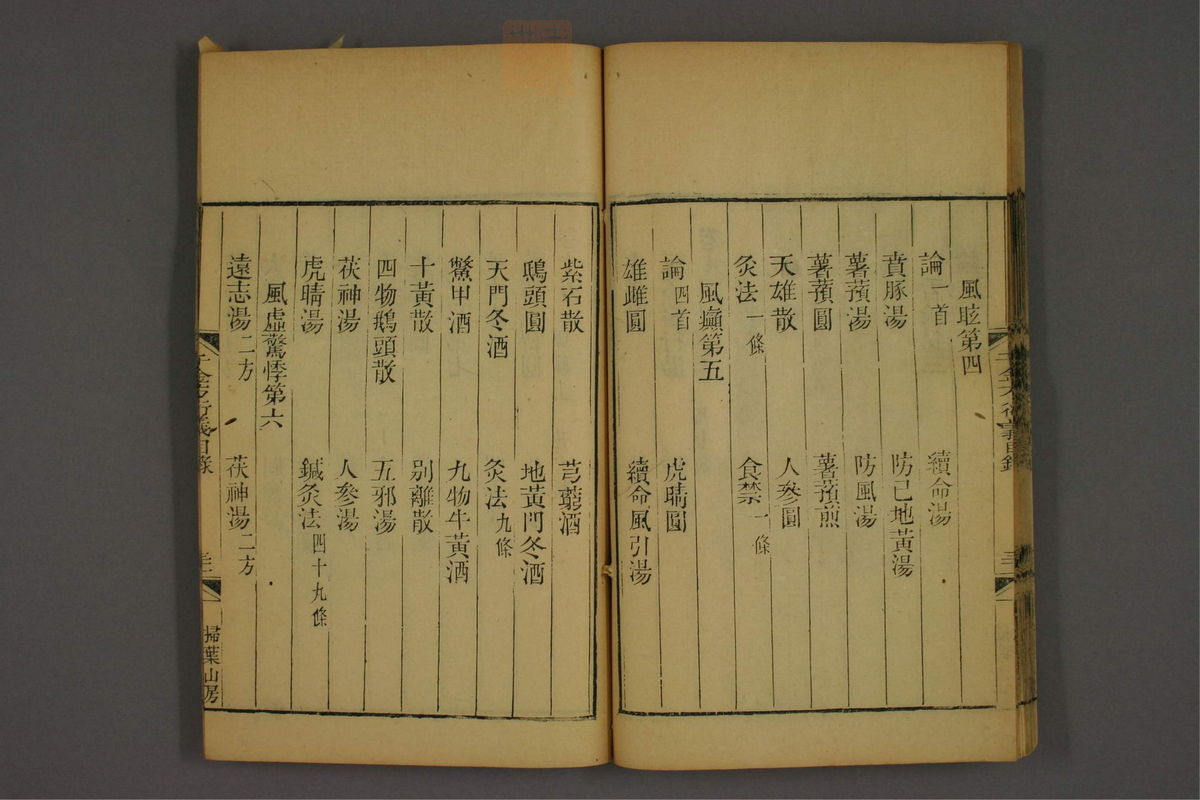 風眩第四
論一首 續命湯
賁豚湯 防己地黃湯
薯蕷湯 防風湯
薯蕷圓 薯蕷煎
天雄散 人參圓
灸法一條 食禁一條
風癲第五
論四首 虎睛圓
雄雌圓 續命風引湯
紫石散 芎藭酒
鴟頭圓 地黃門冬酒
天門冬酒 灸法九條
鱉甲酒 九物牛黃酒
十黃散 別離散
四物鵝頭散 五邪湯
茯神湯 人參湯
虎睛湯 鍼灸法四十九條
風虛驚悸第六
遠志湯二方 茯神湯二方
千金方衍義目錄
掃葉山房